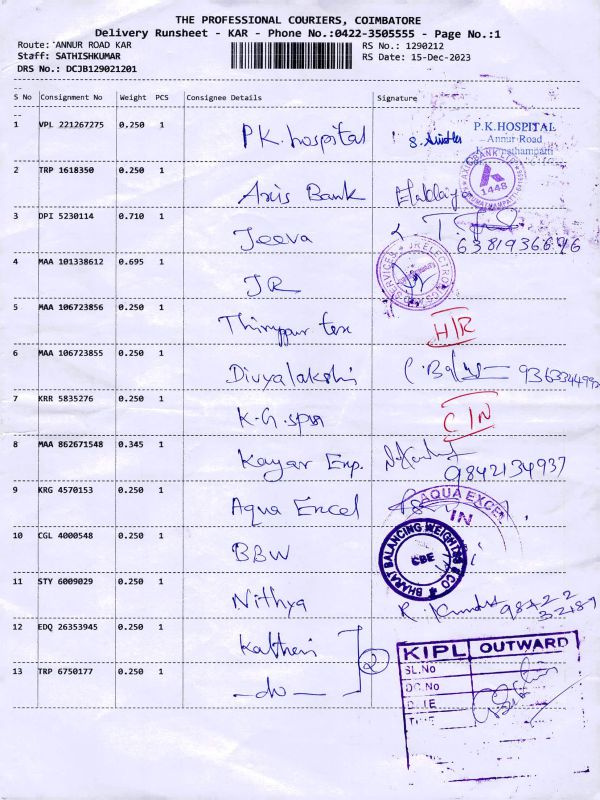 THE PROFESSIONAL COURIERS, COIMBATORE
Delivery Runsheet - KAR - Phone No.:0422-3505555 - Page No.:1
Route: ANNUR ROAD KAR
RS No.: 1290212
Staff: SATHISHKUMAR
RS Date: 15-Dec-2023
DRS No.: DCJB129021201
S No Consignment No Weight PCS Consignee Details Signature
1 VPL 221267275 0.250 1 P.K. hospital
P.K.HOSPITAL
Annur Road
2 TRP 1618350 0.250 1 Axis Bank
AXIS BANK LTD
1448
3 DPI 5230114 0.710 1 Jeeva
4 MAA 101338612 0.695 1 JR
5 MAA 106723856 0.250 1 Thiruppur tex H/R
6 MAA 106723855 0.250 1 Divyalakshi
7 KRR 5835276 0.250 1 K.G. C/N
8 MAA 862671548 0.345 1 Kayar Enp. 9842134937
9 KRG 4570153 0.250 1 Aqua Excel
AQUA EXCEL
IN
10 CGL 4000548 0.250 1 BBW
BHARAT BALANCING WEIGHTS & CO
CBE
11 STY 6009029 0.250 1 Nithya
12 EDQ 26353945 0.250 1 2
13 TRP 6750177 0.250 1 -do-
KIPL OUTWARD
SL.No
DC.No
DATE
TIME